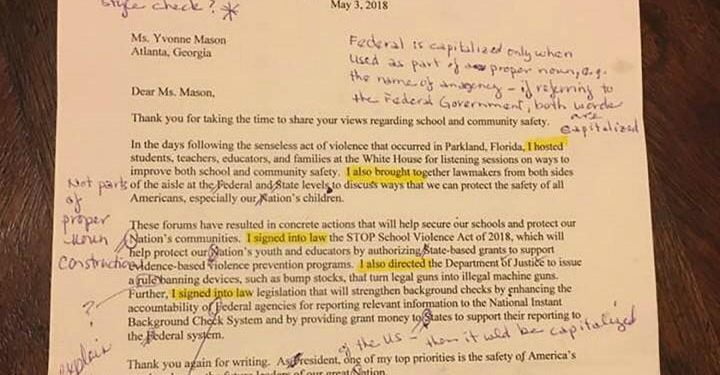 style check? *
May 3, 2018
Ms. Yvonne Mason
Atlanta, Georgia
Federal is capitalized only when
used as part of proper noun, e.g.
the name of an agency - if referring to
the Federal Government, both words
are
capitalized
Dear Ms. Mason,
Thank you for taking the time to share your views regarding school and community safety.
In the days following the senseless act of violence that occurred in Parkland, Florida, I hosted
students, teachers, educators, and families at the White House for listening sessions on ways to
improve both school and community safety. I also brought together lawmakers from both sides
of the aisle at the Federal and State levels to discuss ways that we can protect the safety of all
Americans, especially our Nation's children.
Not parts
of
proper
noun
construction
These forums have resulted in concrete actions that will help secure our schools and protect our
Nation's communities. I signed into law the STOP School Violence Act of 2018, which will
help protect our Nation's youth and educators by authorizing State-based grants to support
evidence-based violence prevention programs. I also directed the Department of Justice to issue
a rule banning devices, such as bump stocks, that turn legal guns into illegal machine guns.
Further, I signed into law legislation that will strengthen background checks by enhancing the
accountability of Federal agencies for reporting relevant information to the National Instant
Background Check System and by providing grant money to States to support their reporting to
the Federal system.
?
explain
of the US - then it would be capitalized
Thank you again for writing. As President, one of my top priorities is the safety of America's
future leaders of our great Nation.